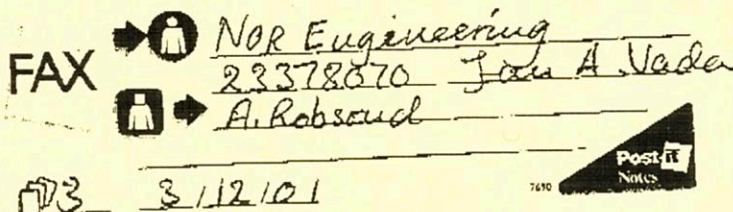 FAX
NOR Engineering
23378070 Jan A. Vada
A. Robsrud
3 3/12/01
Post-it
Notes
7690